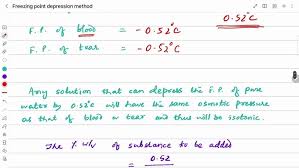 Freezing point depression method
0.52°C
F.P. of blood = -0.52°C
F.P. of tear = -0.52°C
Any solution that can depress the F.P. of pure
water by 0.52°C will have the same osmotic pressure
as that of blood or tear and thus will be isotonic.
The % w/v of substance to be added
= 0.52